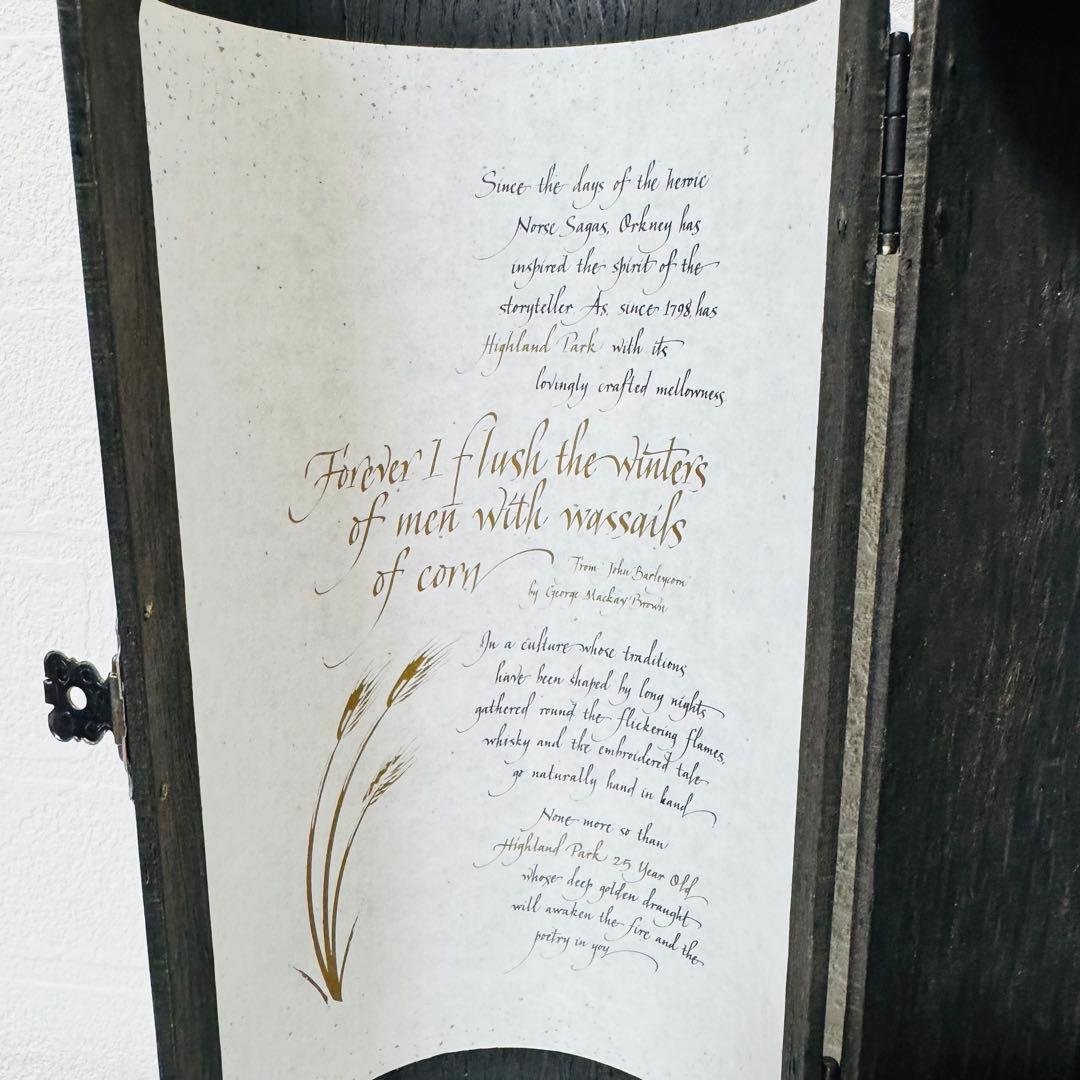 Since the days of the heroic
Norse Sagas, Orkney has
inspired the spirit of the
storyteller. As, since 1798, has
Highland Park with its
lovingly crafted mellowness.
Forever I flush the winters
of men with wassails
of corn
From 'John Barleycorn'
by George Mackay Brown
In a culture whose traditions
have been shaped by long nights
gathered round the flickering flames,
whisky and the embroidered tale
go naturally hand in hand
None more so than
Highland Park 25 Year Old
whose deep golden draught
will awaken the fire and the
poetry in you